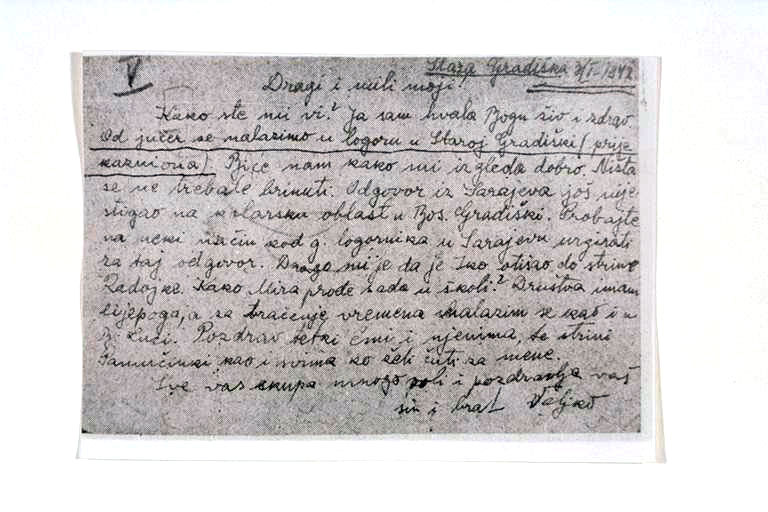 V
Stara Gradiška 3/I-1942
Dragi i mili moji!
Kako ste mi vi? Ja sam hvala Bogu živ i zdrav
Od jučer se nalazimo u logoru u Staroj Gradiški (prije
kazniona). Biće nam kako mi izgleda dobro. Ništa
se ne trebate brinuti. Odgovor iz Sarajeva još nije
stigao na oblast u Bos. Gradiški. Probajte
na neki način kod g. logornika u Sarajevu urgirati
za taj odgovor. Drago mi je da je Iko otišao do strine
Radojke. Kako Mira prođe sada u školi? Društva imam
lijepoga, a za kraćenje vremena nalazim se kao i u
kući. Pozdrav tetki i njenima, te strini
kao i svima ko želi čuti za mene.
Sve vas skupa mnogo voli i pozdravlja vaš
sin i brat Veljko